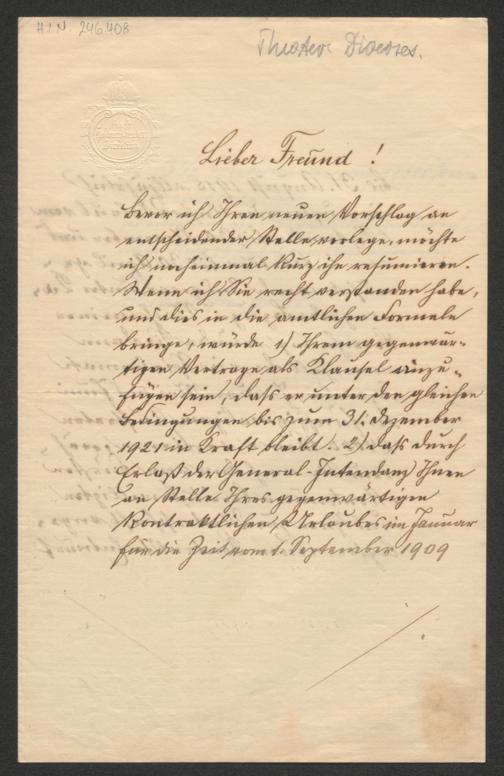 H.I.N. 246.408
Theater Diverses.
Lieber Freund !
Bevor ich Ihren neuen Vorschlag an
entscheidender Stelle vorlege, möchte
ich noch einmal kurz ihn resumieren.
Wenn ich Sie recht verstanden habe,
und dies in die amtlichen Formeln
bringe, würde 1) Ihrem gegenwär-
tigen Vertrage als Klausel einzu-
fügen sein, dass er unter den gleichen
Bedingungen bis zum 31. Dezember
1921 in Kraft bleibt. 2) dass durch
Erlaß der General-Intendanz Ihnen
an Stelle Ihres gegenwärtigen
kontraktlichen Urlaubes im Januar
für die Zeit vom 1. September 1909